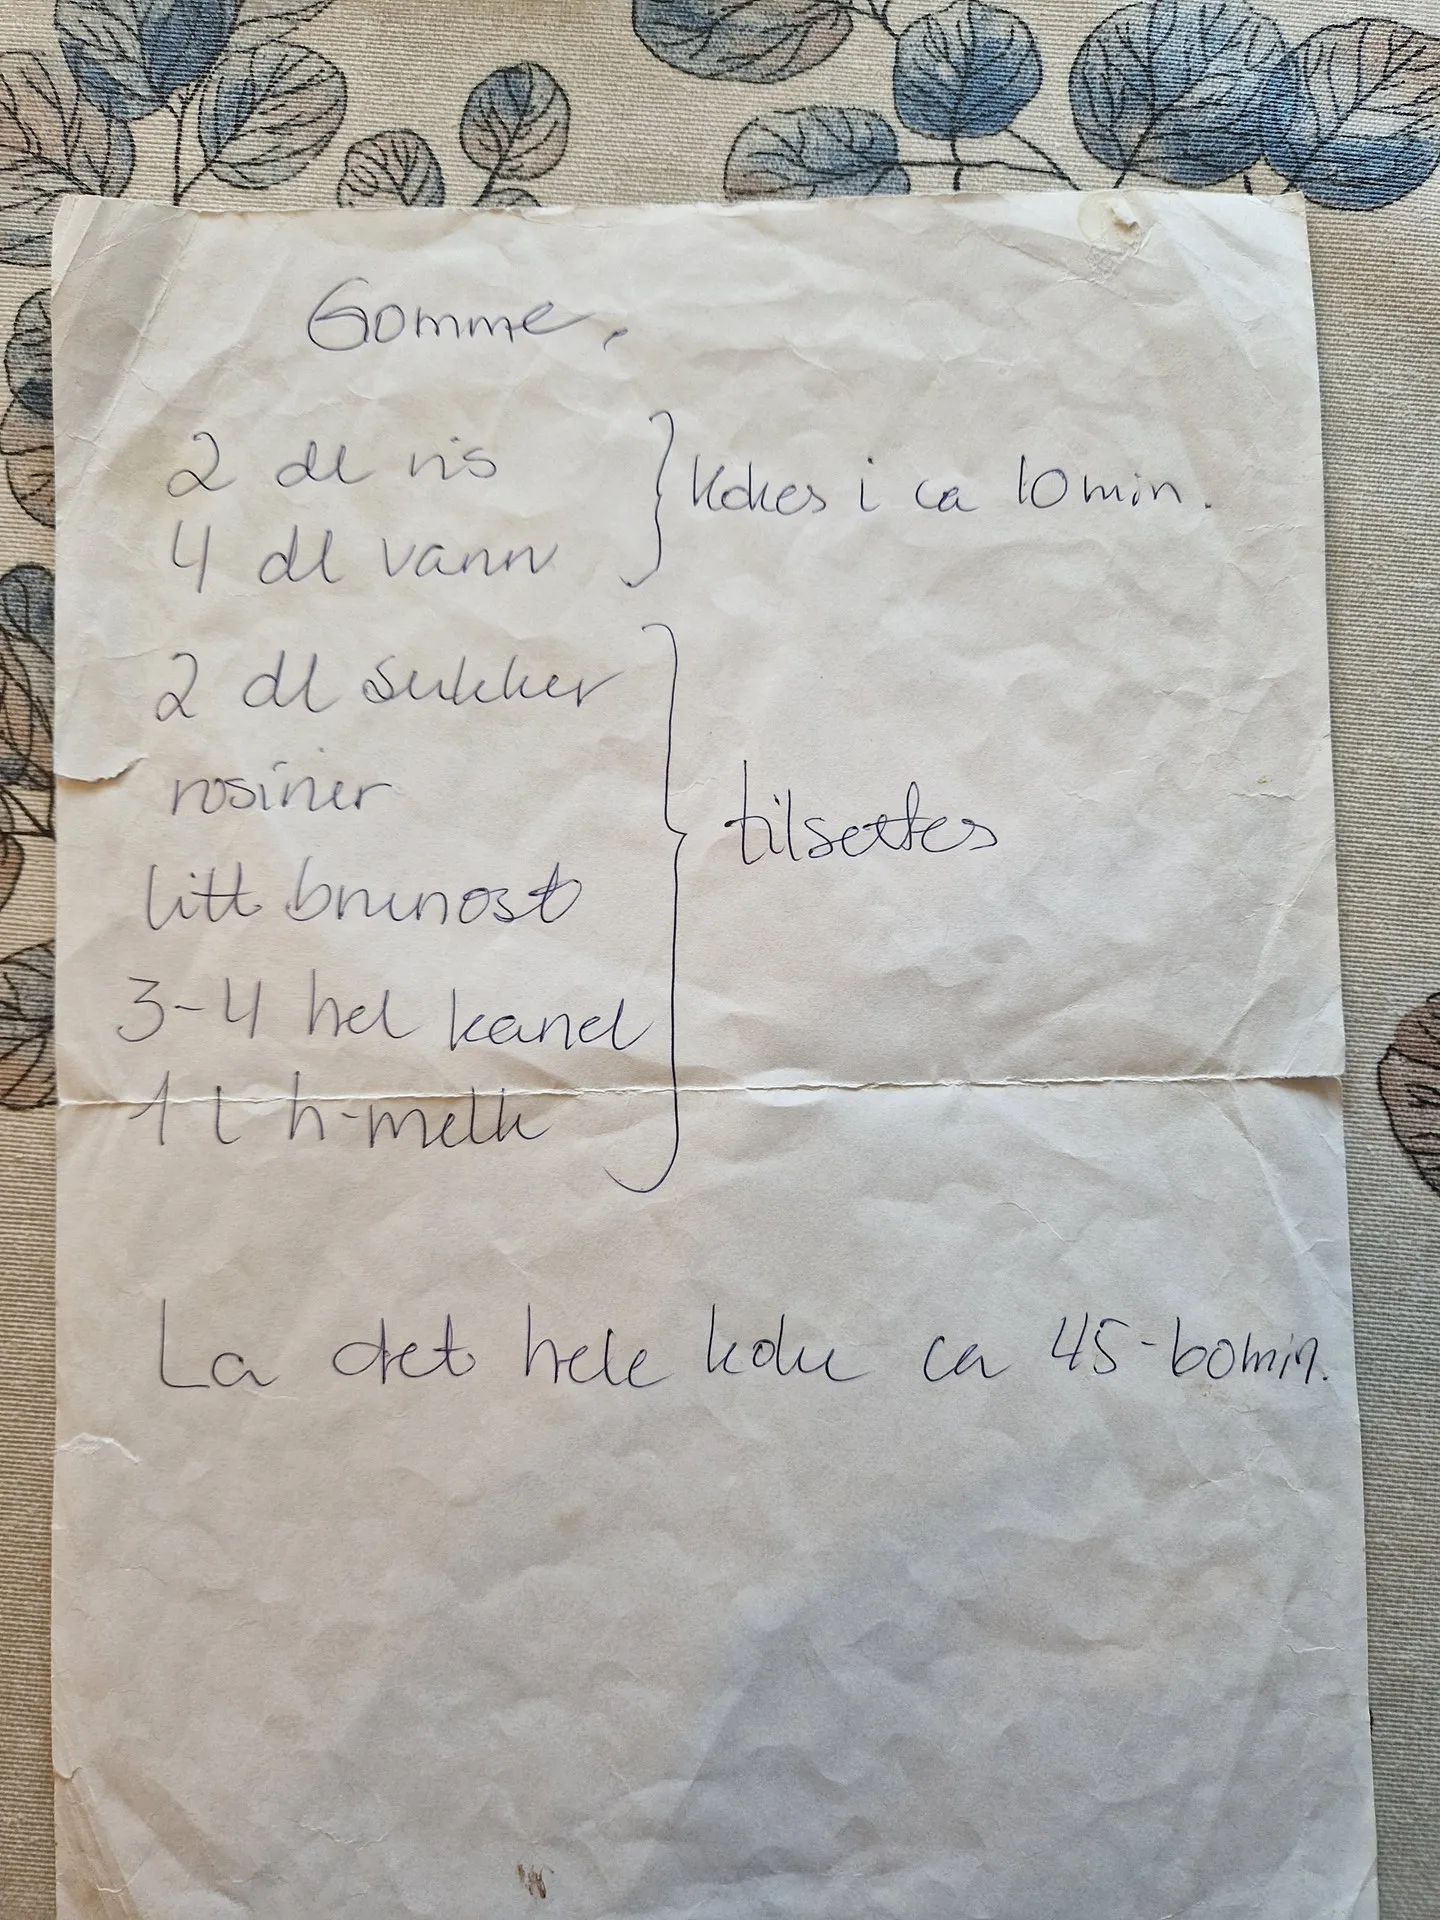 Gomme.
2 dl ris
4 dl vann
Kokes i ca 10 min.
2 dl sukker
rosiner
litt brunost
3-4 hel kanel
1 l h-melk
tilsettes
La det hele koke ca 45-60min.